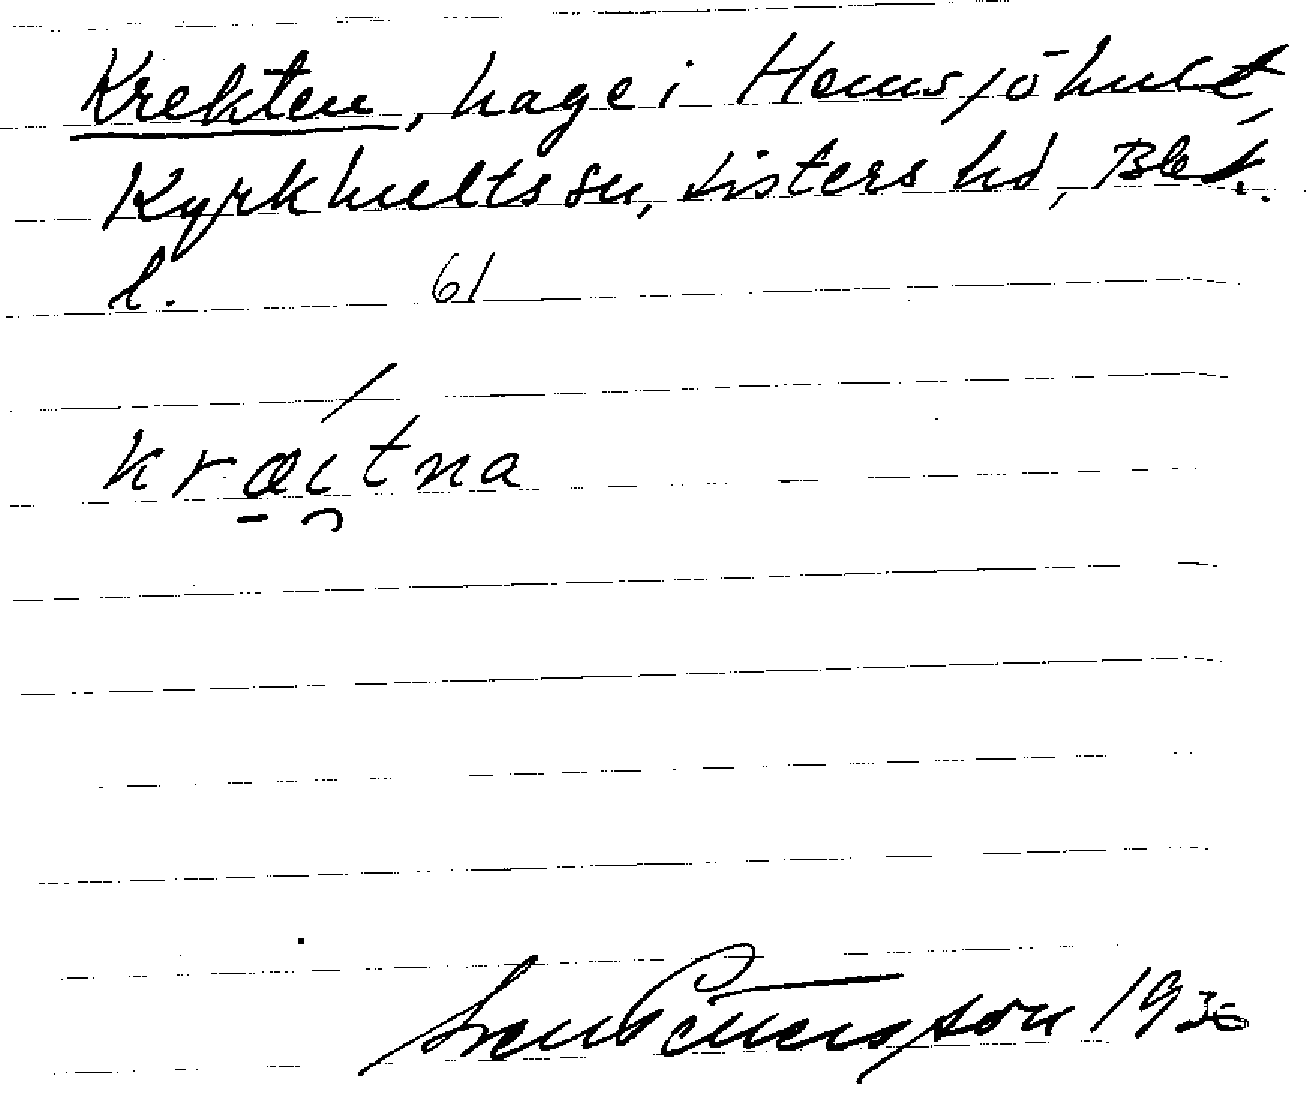 Krekten, hage i Hemsjöhult,
Kyrkhults sn, Listers hd, Blek.
l. 61
kræitna
Sven Benson 1936